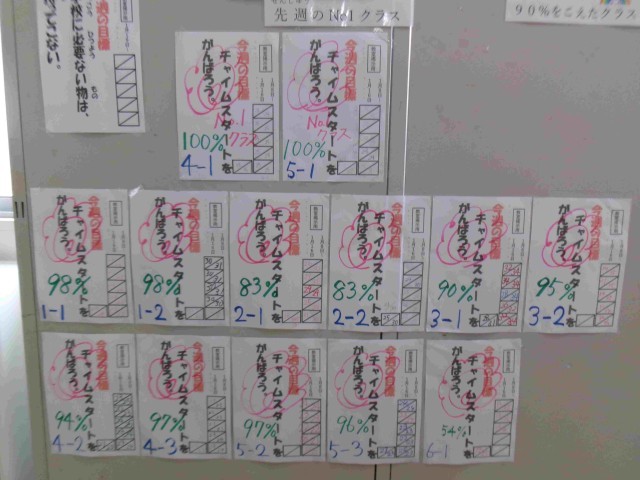 先週のNo.1クラス
90%をこえたクラス
週の目標
校に必要ない物は、
てこない。
今週の目標
チャイムスタートを
がんばろう。
No.1
クラス
100%
4-1
今週の目標
チャイムスタートを
がんばろう。
No.1
クラス
100%
5-1
今週の目標
チャイムスタートを
がんばろう。
98%
1-1
今週の目標
チャイムスタートを
がんばろう。
98%
1-2
今週の目標
チャイムスタートを
がんばろう。
83%
2-1
今週の目標
チャイムスタートを
がんばろう。
83%
2-2
今週の目標
チャイムスタートを
がんばろう。
90%
3-1
今週の目標
チャイムスタートを
がんばろう。
95%
3-2
今週の目標
チャイムスタートを
がんばろう。
94%
4-2
今週の目標
チャイムスタートを
がんばろう。
97%
4-3
今週の目標
チャイムスタートを
がんばろう。
97%
5-2
今週の目標
チャイムスタートを
がんばろう。
96%
5-3
今週の目標
チャイムスタートを
がんばろう。
54%
6-1